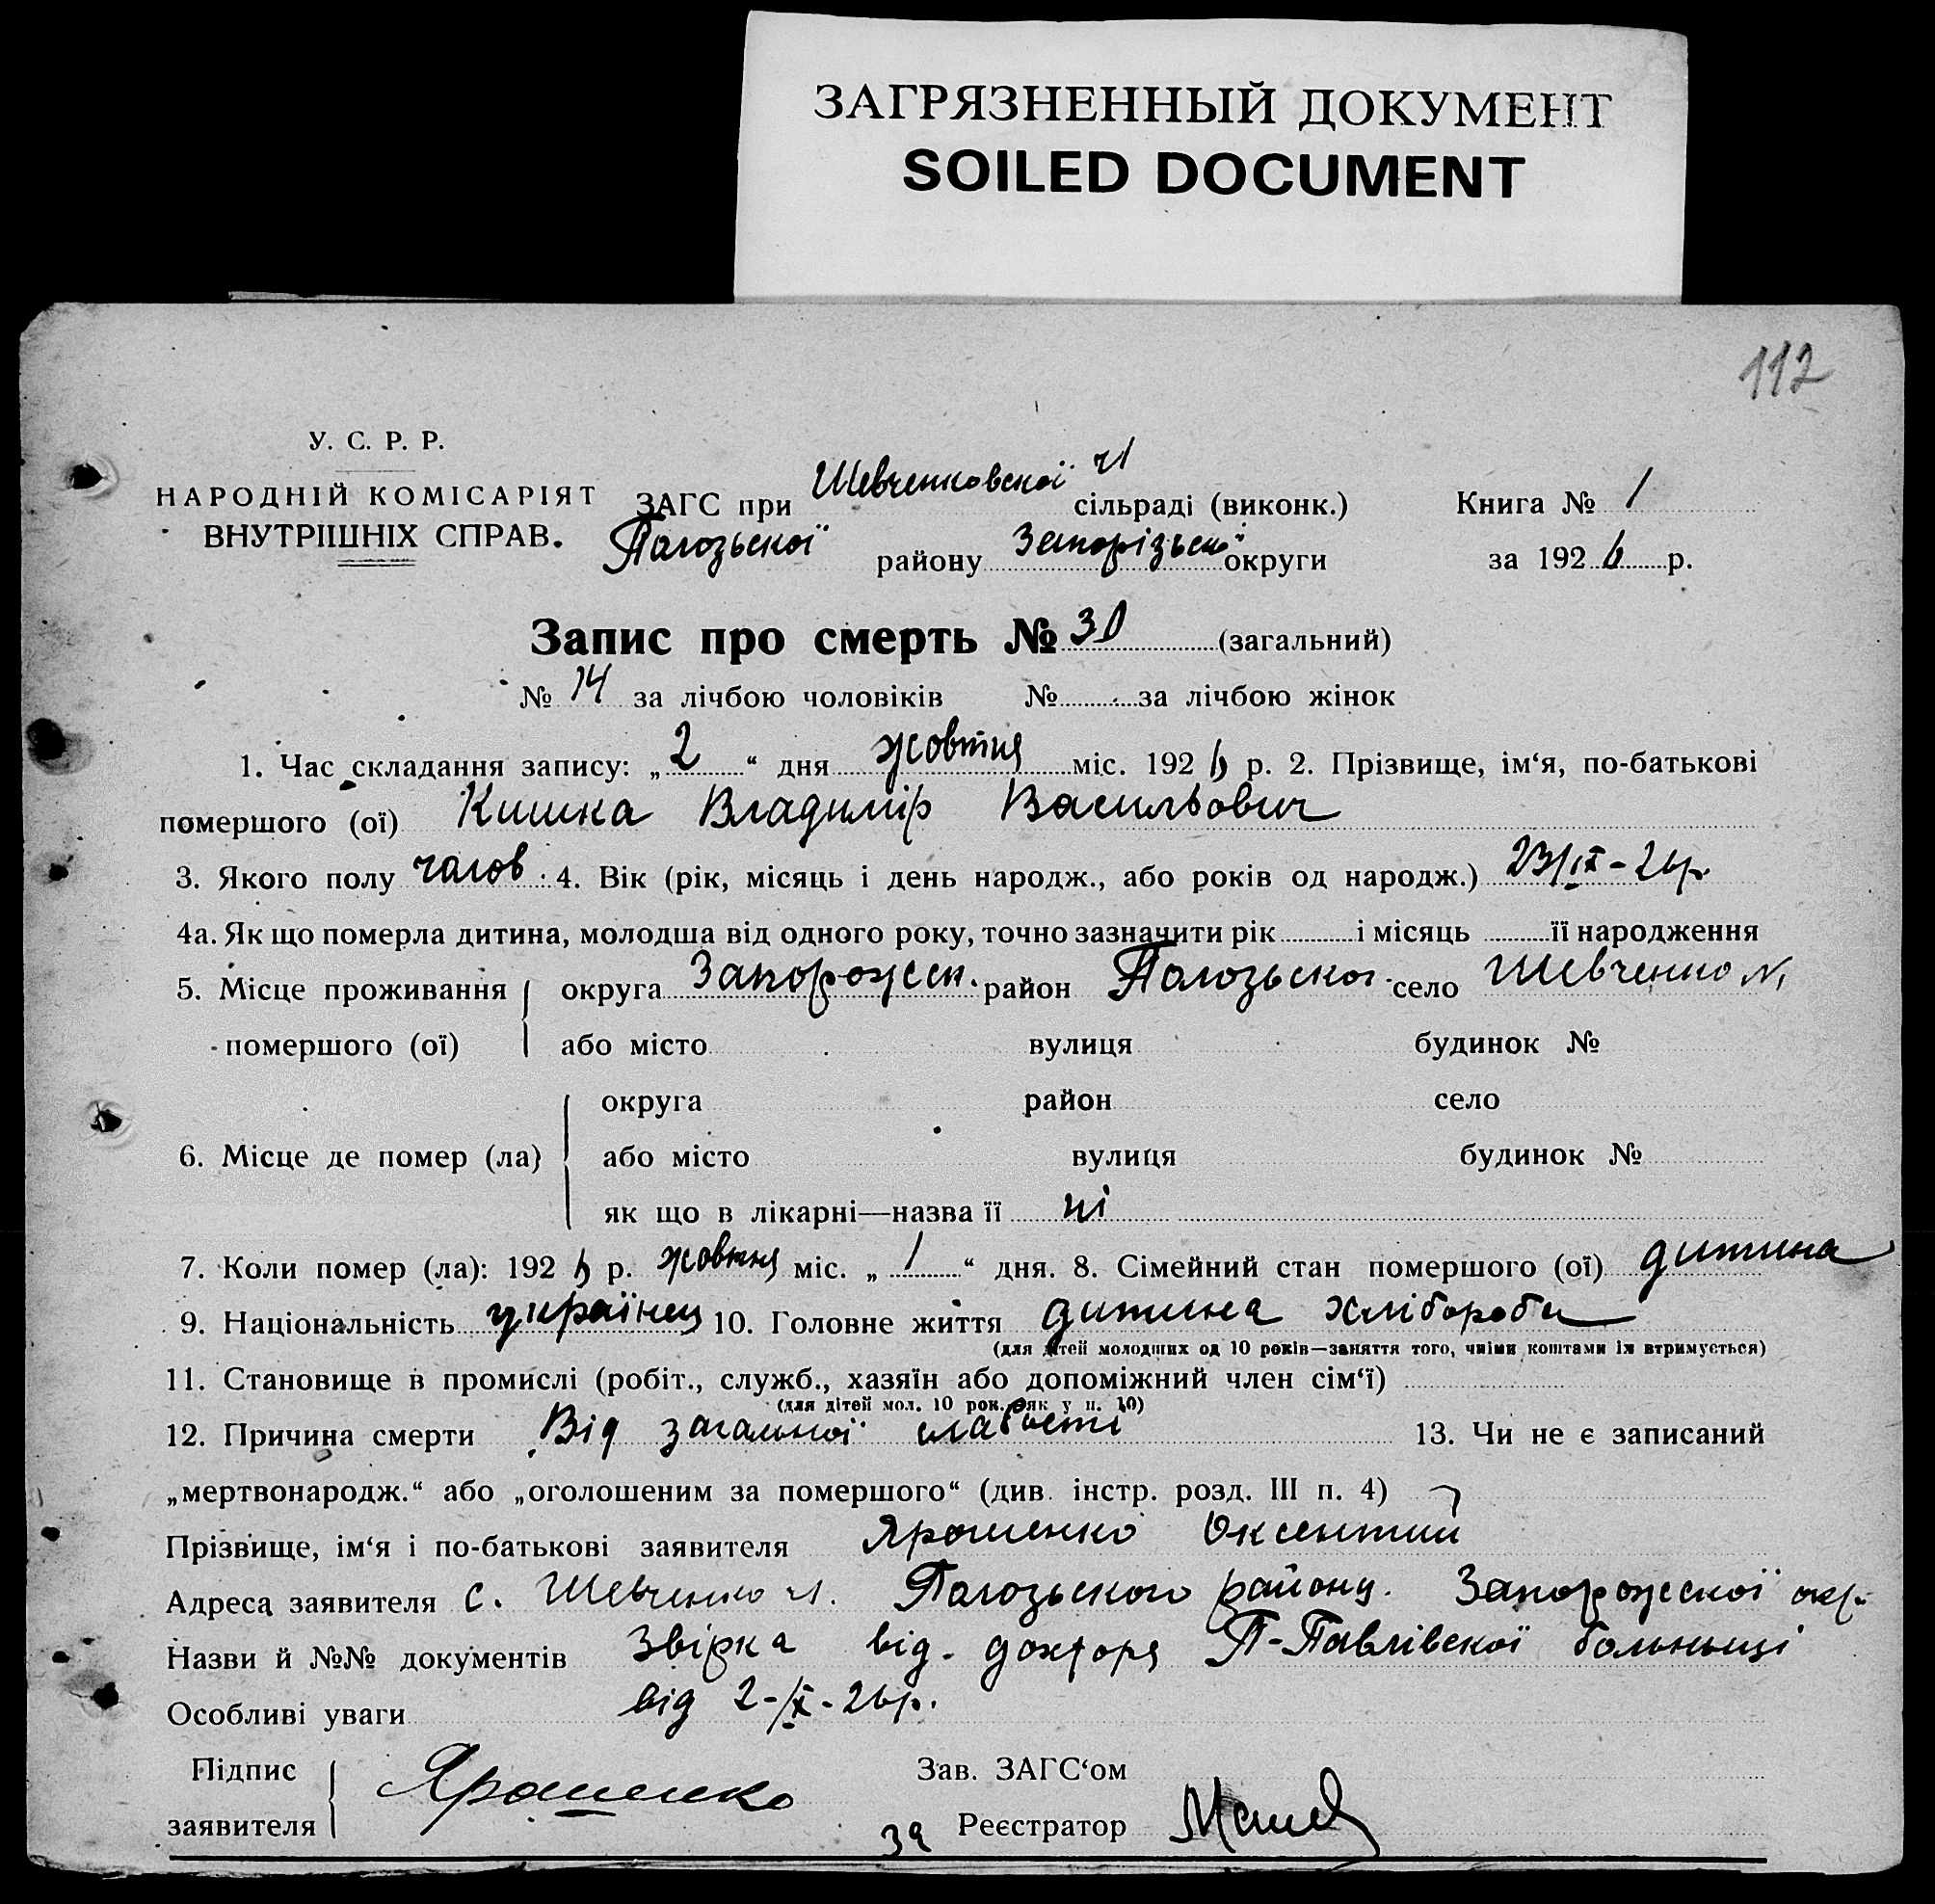 ЗАГРЯЗНЕННЫЙ ДОКУМЕНТ
SOILED DOCUMENT
112
У. С. Р. Р.
НАРОДНІЙ КОМІСАРІЯТ
ВНУТРІШНІХ СПРАВ.
ЗАГС при Шевченковскої сільраді (виконк.) Книга № 1
Пологзьської району Запорізької округи за 1926 р.
Запис про смерть № 30 (загальний)
№ 14 за лічбою чоловіків № за лічбою жінок
1. Час складання запису: „2“ дня жовтня міс. 1926 р. 2. Прізвище, ім‘я, по-батькові
помершого (ої) Кишка Владимір Васильович
3. Якого полу чолов. 4. Вік (рік, місяць і день народж., або років од народж.) 23/IX-26р.
4а. Як що померла дитина, молодша від одного року, точно зазначити рік і місяць її народження
5. Місце проживання округа Запорожск. район село Шевченко
помершого (ої) або місто вулиця будинок №
округа район село
6. Місце де помер (ла) або місто вулиця будинок №
як що в лікарні—назва її ні
7. Коли помер (ла): 1926 р. жовтня міс. „1“ дня. 8. Сімейний стан помершого (ої) дитина
9. Національність українец 10. Головне життя дитина хлібороба
(для дітей молодших од 10 років—заняття того, чиїми коштами їх втримується)
11. Становище в промислі (робіт., служб., хазяїн або допоміжний член сім‘ї)
(для дітей мол. 10 рок. як у п. 10)
12. Причина смерти Від загальної слабости 13. Чи не є записаний
„мертвонародж.“ або „оголошеним за помершого“ (див. інстр. розд. III п. 4)
Прізвище, ім‘я і по-батькові заявителя Ярошенко Оксентий
Адреса заявителя с. Шевченко району. Запорожескої окр.
Назви й №№ документів від. П-Павлівскої больныці
Особливі уваги від 2-/X-26р.
Підпис Ярошенко Зав. ЗАГС‘ом
заявителя за Реєстратор